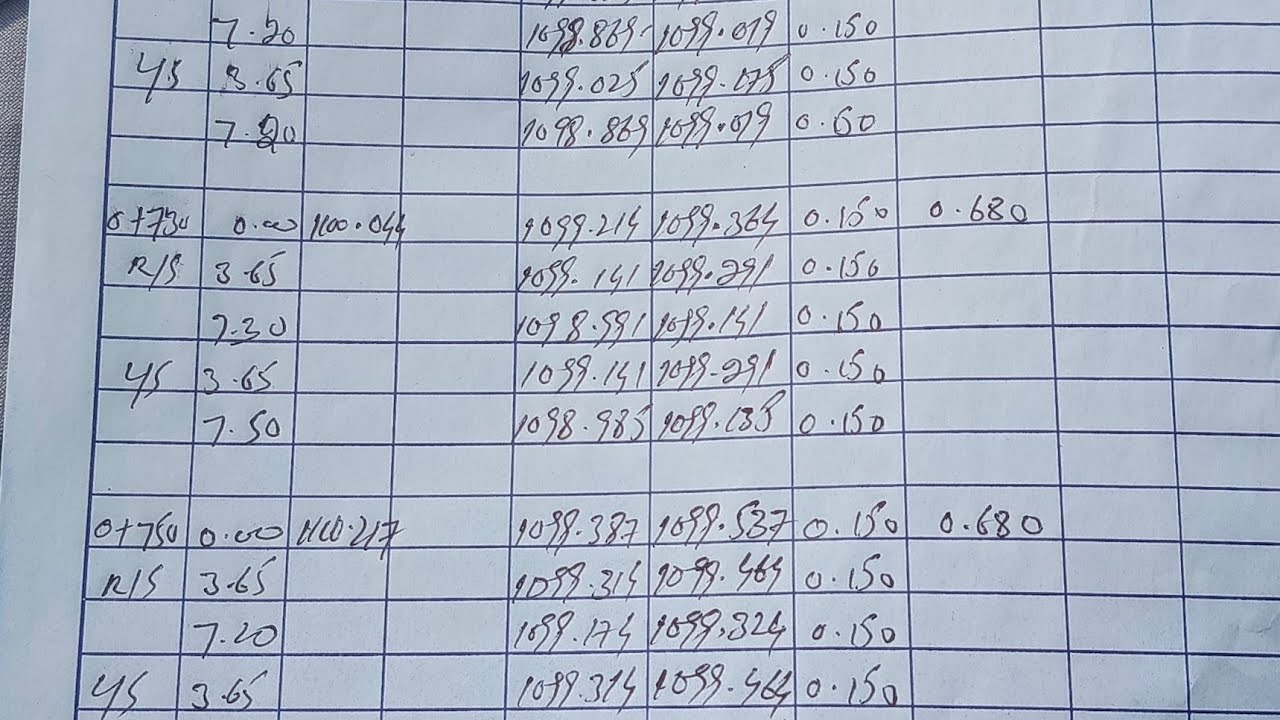 7.20 1098.869 1099.019 0.150
L/S 3.65 1099.025 1099.175 0.150
7.20 1098.869 1099.019 0.60
0+730 0.00 1100.044 1099.214 1099.364 0.150 0.680
R/S 3.65 1099.141 1099.291 0.150
7.30 1098.991 1099.141 0.150
L/S 3.65 1099.141 1099.291 0.150
7.50 1098.985 1099.135 0.150
0+750 0.00 1100.217 1099.387 1099.537 0.150 0.680
R/S 3.65 1099.314 1099.464 0.150
7.20 1099.174 1099.324 0.150
L/S 3.65 1099.314 1099.464 0.150